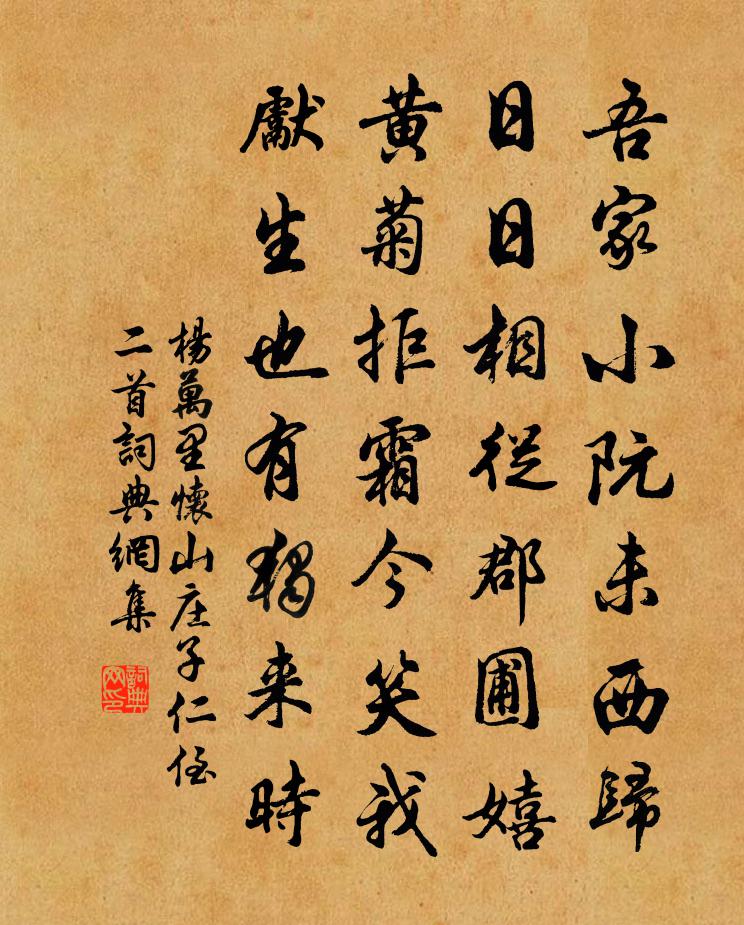 吾家小阮未西歸
日日相從郡圃嬉
黃菊拒霜今笑我
獻生也有獨来時
楊萬里懷山庄子仁侄
二首詞典網集
詞典網印